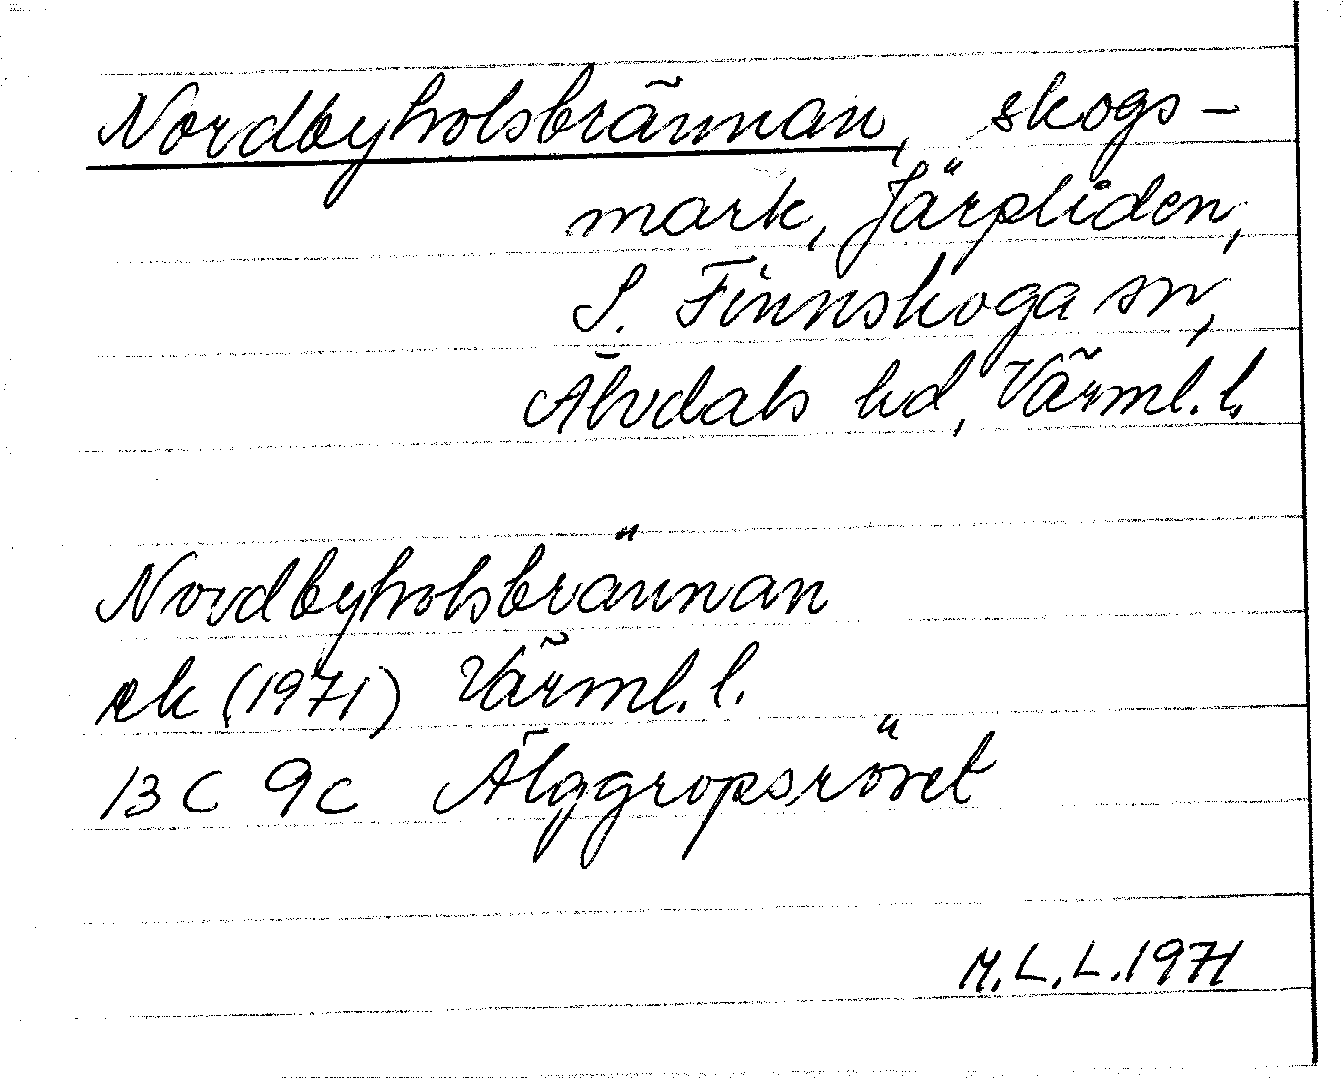 Nordbyholsbrännan, skogs-
mark, Järpliden,
S. Finnskoga sn,
Älvdals hd, Värml. l.
Nordbyholsbrännan
ek (1971) Värml. l.
13 C 9c Älggropsröret
M.L.L. 1971